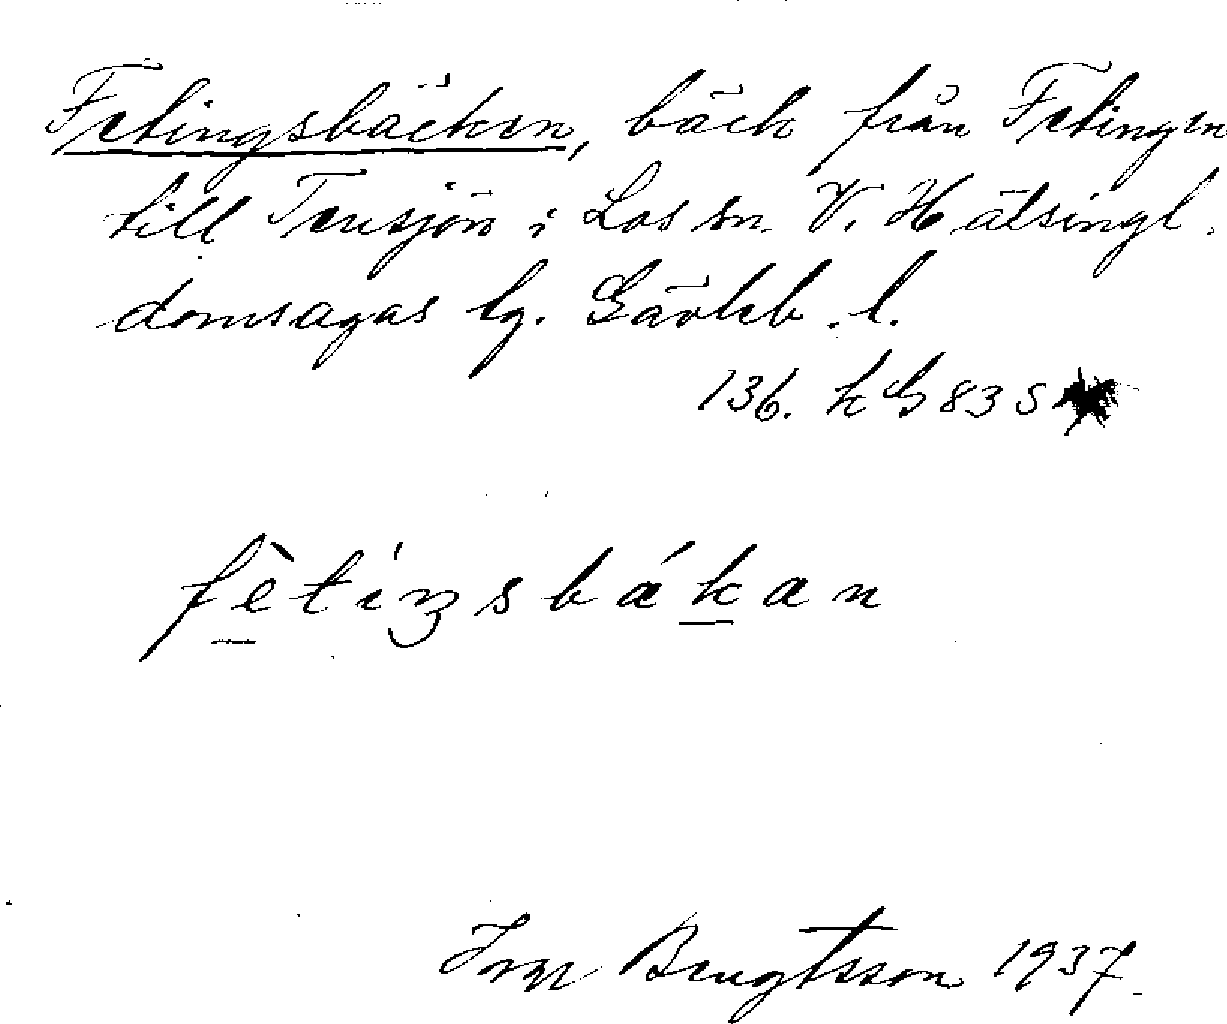 Fetingsbäcken, bäck från Fetingen
till Tensjön i Los sn. V. Hälsingl.
domsagas tg. Gävleb. l.
136. k G 83 S
fètiŋsbákan
Inge Bengtsson 1937.